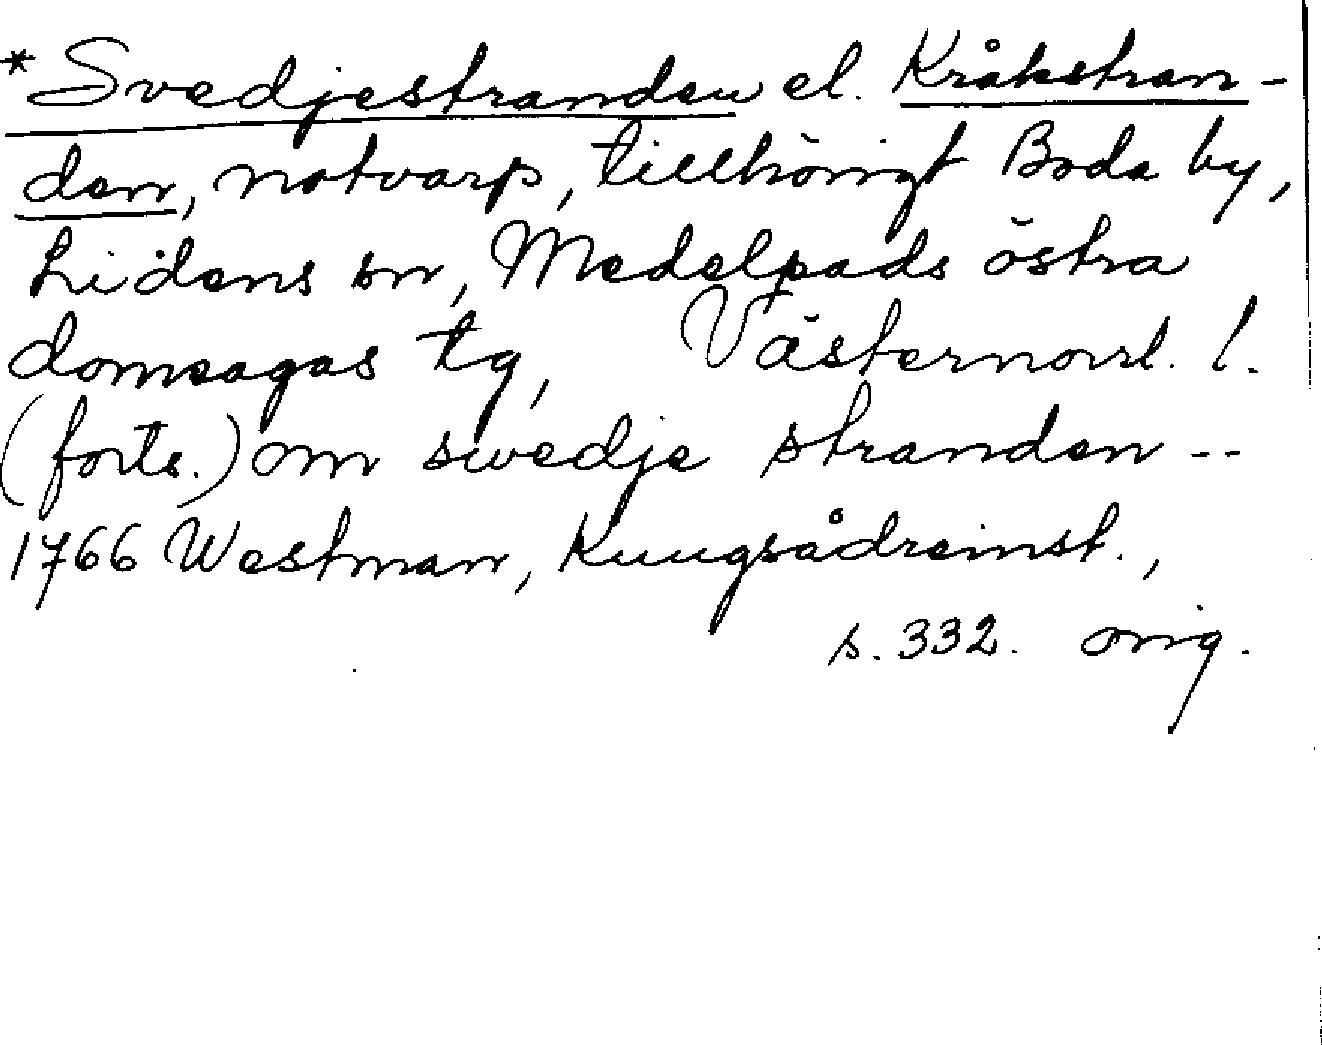 *Svedjestranden el. Kråkstran-
den, notvarp, tillhörigt Boda by,
Lidens sn, Medelpads östra
domsagas tg, Västernorrl. l.
(forts.) om swedje stranden --
1766 Westman, Kungsådreinst.,
s. 332. orig.